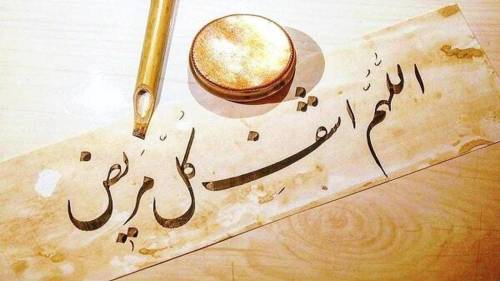 اللّهُمَّ اشفِ كلَّ مَریض